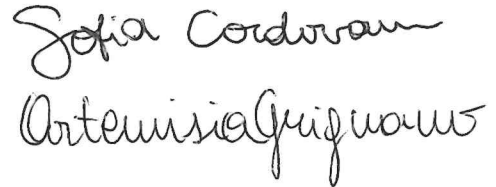 Sofia Cordovani
Artemisia Grignano